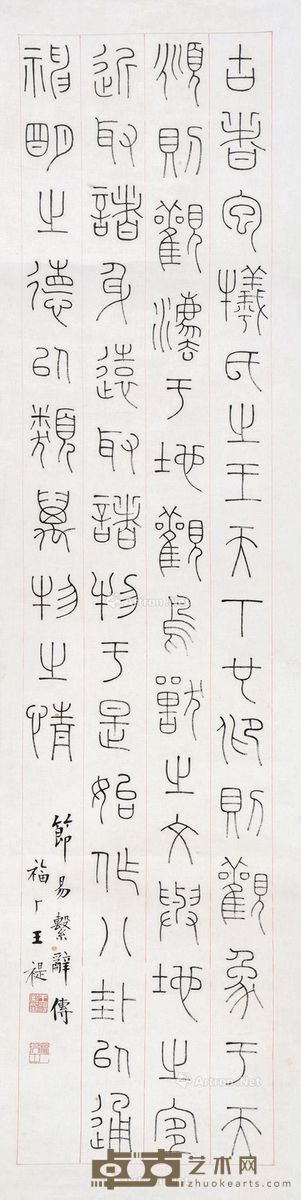 古者包犧氏之王天下也仰則觀象于天
頫則觀灋于地觀鳥獸之文與地之宜
近取諸身遠取諸物于是始作八卦以通
神明之德以類萬物之情
節易繫辭傳
福厂王禔
Artron.Net
卓克艺术网
zhuokearts.com